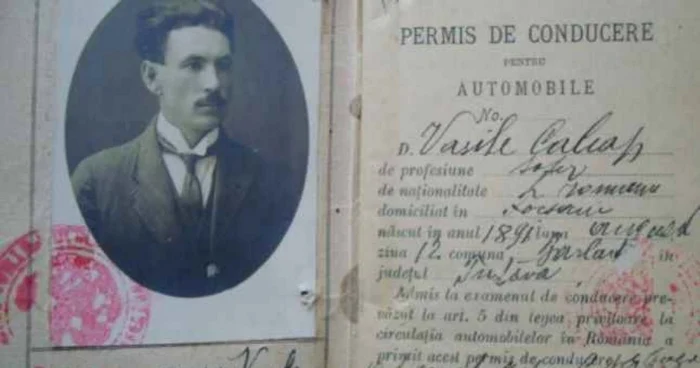 PERMIS DE CONDUCERE
PENTRU
AUTOMOBILE
No.
D. Vasile
de profesiune sofer
de naționalitate romana
domiciliat în
născut în anul 1891 luna august
ziua 12 comuna Barlad în
județul Tutova
Admis la examenul de conducere pre-
văzut la art. 5 din legea privitoare la
circulația automobilelor în România a
primit acest permis de conducere